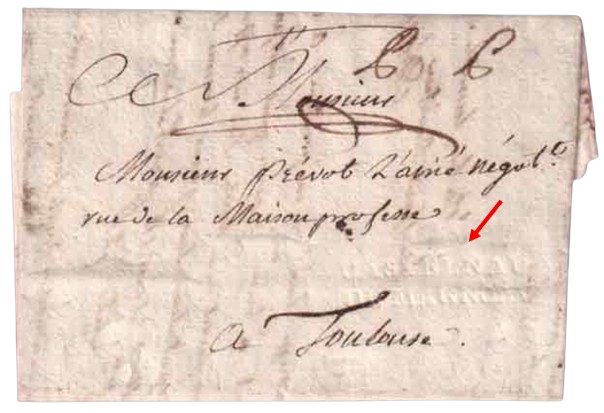 P P
Monsieur
Monsieur Prévot L'ainé négot.t
rue de la Maison professe
a Toulouse.